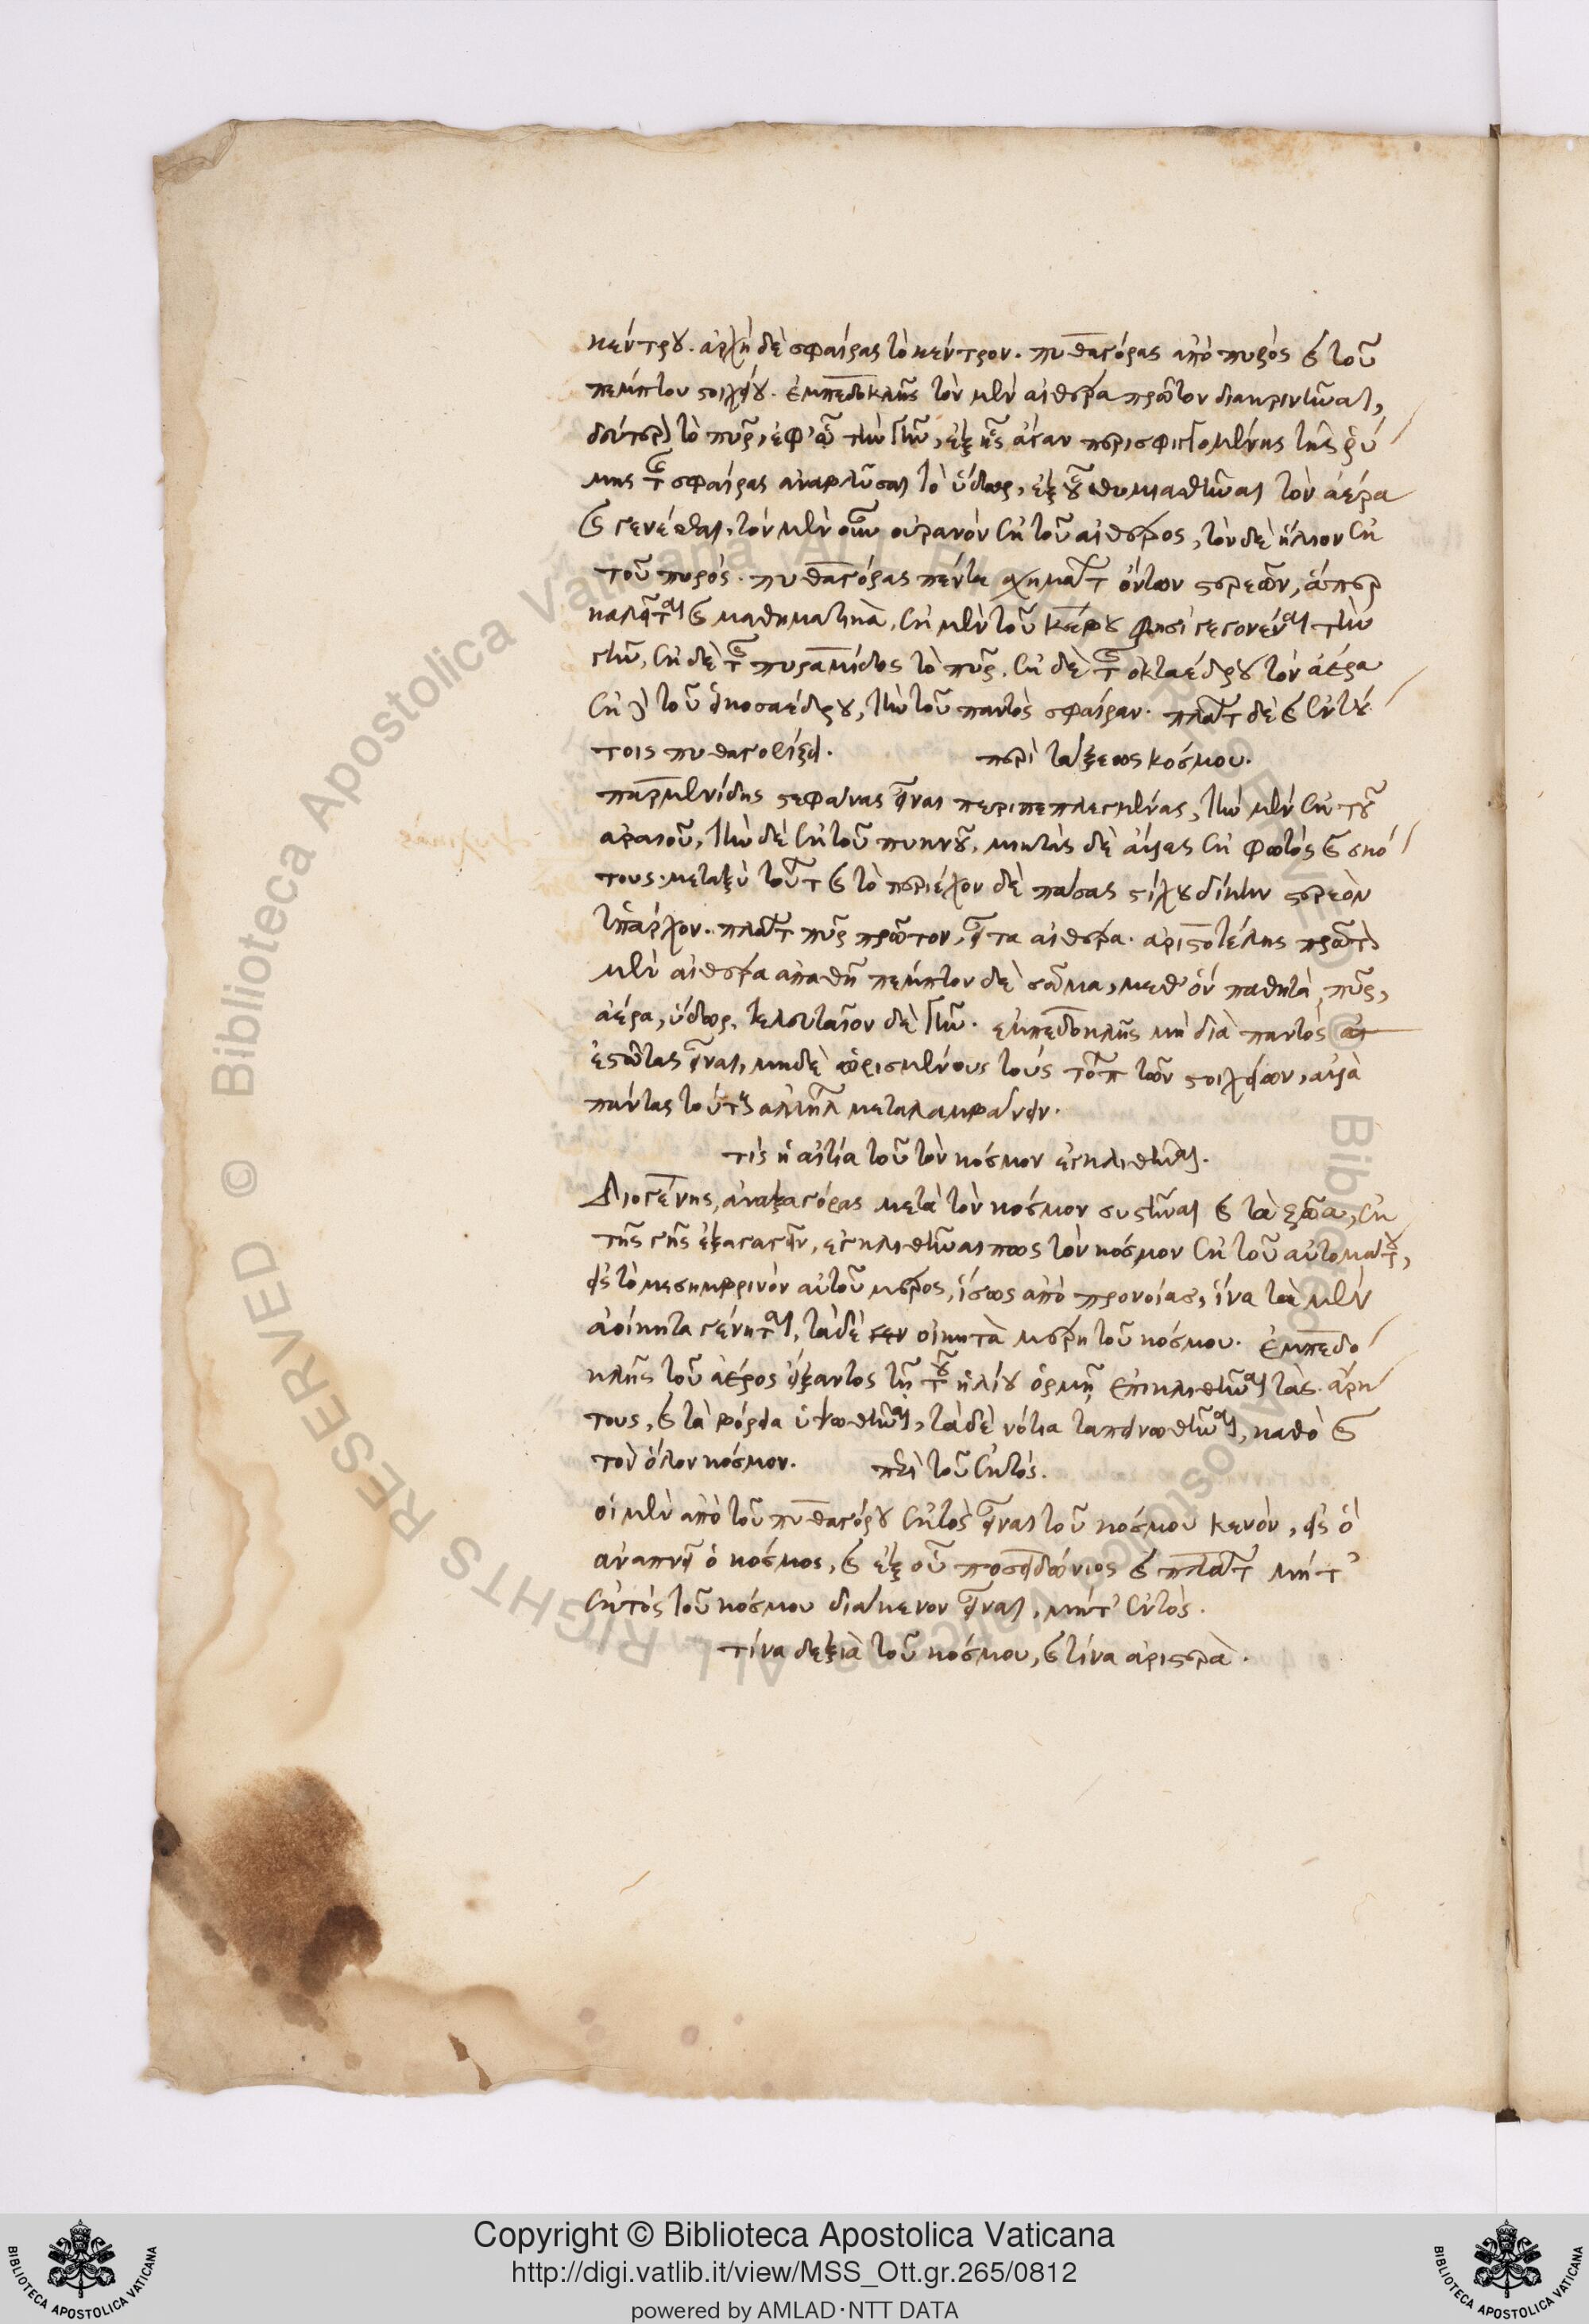 κέντρου. ἀρχὴ δὲ σφαίρας τὸ κέντρον. πυθαγόρας ἀπὸ πυρὸς καὶ τοῦ
πέμπτου στοιχείου. ἐμπεδοκλῆς τὸν μὲν αἰθέρα πρῶτον διακριθῆναι,
δεύτερον δὲ τὸ πῦρ, ἐφ' ᾧ τὴν γῆν, ἐξ ἧς ἄγαν περισφιγγομένης τῆς ῥύ
μης τῆς σφαίρας ἀναβλῦσαι τὸ ὕδωρ, ἐξ οὗ θυμιαθῆναι τὸν ἀέρα
καὶ γενέσθαι, τὸν μὲν οὖν οὐρανὸν ἐκ τοῦ αἰθέρος, τὸν δὲ ἥλιον ἐκ
τοῦ πυρός. πυθαγόρας πέντε σχημάτων ὄντων στερεῶν, ἅπερ
καλεῖται καὶ μαθηματικὰ, ἐκ μὲν τοῦ κύβου φησὶ γεγονέναι τὴν
γῆν, ἐκ δὲ τῆς πυραμίδος τὸ πῦρ. ἐκ δὲ τοῦ ὀκταέδρου τὸν ἀέρα
ἐκ δὲ τοῦ εἰκοσαέδρου, τὴν τοῦ παντὸς σφαίραν. πλάτων δὲ καὶ ἐν τού
τοις πυθαγορίζει. περὶ τάξεως κόσμου.
παρμενίδης στεφάνας εἶναι περιπεπλεγμένας, τὴν μὲν ἐκ τοῦ
ἀραιοῦ, τὴν δὲ ἐκ τοῦ πυκνοῦ, μικτὰς δὲ ἄλλας ἐκ φωτὸς καὶ σκό
τους. μεταξὺ τούτων καὶ τὸ περιέχον δὲ πάσας τείχους δίκην στερεὸν
ὑπάρχον. πλάτων πῦρ πρῶτον, εἶτα αἰθέρα. ἀριστοτέλης πρῶτον
μὲν αἰθέρα ἀπαθῆ πέμπτον δὲ σῶμα, μεθ' ὃν παθητὰ, πῦρ,
ἀέρα, ὕδωρ, τελευταῖον δὲ γῆν. ἐμπεδοκλῆς μὴ διὰ παντὸς
ἑστῶτας εἶναι, μηδὲ ὡρισμένους τοὺς τόπους τῶν στοιχείων, ἀλλὰ
πάντας τούτους ἀλλήλων μεταλαμβάνειν.
τίς ἡ αἰτία τοῦ τὸν κόσμον ἐγκλιθῆναι.
Διογένης, ἀναξαγόρας μετὰ τὸν κόσμον συστῆναι καὶ τὰ ζῷα, ἐκ
τῆς γῆς ἐξαγαγεῖν, ἐγκλιθῆναι πως τὸν κόσμον ἐκ τοῦ αὐτομάτου,
εἰς τὸ μεσημβρινὸν αὐτοῦ μέρος, ἴσως ἀπὸ προνοίας, ἵνα τὰ μὲν
ἀοίκητα γένηται, τὰ δὲ οἰκητὰ μέρη τοῦ κόσμου. ἐμπεδο
κλῆς τοῦ ἀέρος εἴξαντος τῇ τοῦ ἡλίου ὁρμῇ ἐπικλιθῆναι τὰς ἄρκ
τους, καὶ τὰ βόρεια ὑψωθῆναι, τὰ δὲ νότια ταπεινωθῆναι, καθὸ καὶ
τὸν ὅλον κόσμον. περὶ τοῦ ἐκτός.
οἱ μὲν ἀπὸ τοῦ πυθαγόρου ἐκτὸς εἶναι τοῦ κόσμου κενὸν, εἰς ὃ
ἀναπνεῖ ὁ κόσμος, καὶ ἐξ οὗ ποσειδώνιος καὶ πλάτων μήτ'
ἐκτὸς τοῦ κόσμου διάκενον εἶναι, μήτ' ἐντός.
τίνα δεξιὰ τοῦ κόσμου, καὶ τίνα ἀριστερὰ.
Copyright © Biblioteca Apostolica Vaticana
http://digi.vatlib.it/view/MSS_Ott.gr.265/0812
powered by AMLAD·NTT DATA
BIBLIOTECA APOSTOLICA VATICANA
BIBLIOTECA APOSTOLICA VATICANA